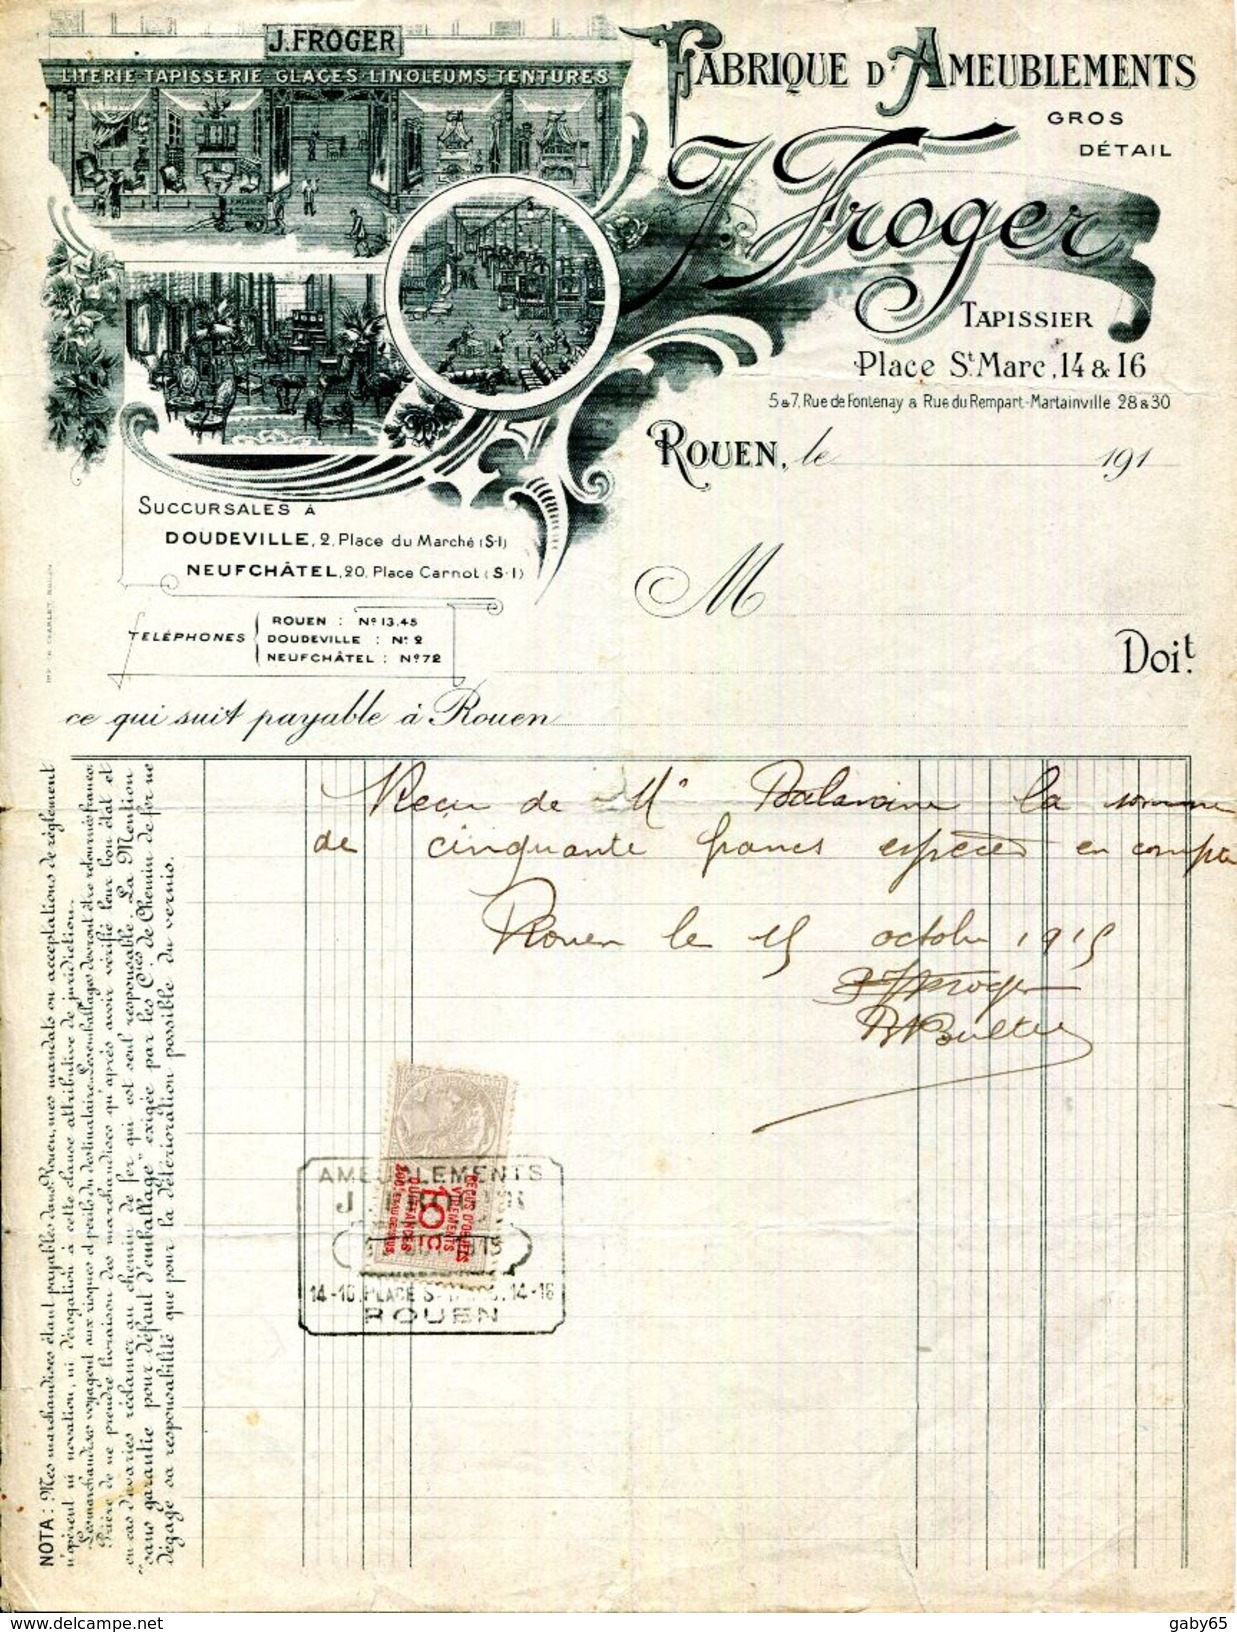 J. FROGER
LITERIE-TAPISSERIE-GLACES-LINOLEUMS-TENTURES
FABRIQUE D'AMEUBLEMENTS
GROS
DÉTAIL
J. Froger
TAPISSIER
Place St Marc, 14 & 16
5 & 7, Rue de Fontenay & Rue du Rempart-Martainville 28 & 30
ROUEN, le 191
SUCCURSALES À
DOUDEVILLE, 2, Place du Marché (S-I)
NEUFCHÂTEL, 20, Place Carnot (S-I)
TÉLÉPHONES
ROUEN : No 13.45
DOUDEVILLE : No 2
NEUFCHÂTEL : No 72
M
Doit.
ce qui suit payable à Rouen
Recu de Mr la somme
de cinquante francs espèces en compte
Rouen le 15 octobre 1915
J Froger
AMEUBLEMENTS
J. FROGER
REÇUS D'OBJETS
VIREMENTS
10 c
QUITTANCES
14-16, PLACE St MARC, 14-16
ROUEN
NOTA : Mes marchandises étant payables dans Rouen, mes mandats ou acceptations de règlement
n'opèrent ni novation, ni dérogation à cette clause attributive de juridiction.
Les marchandises voyagent aux risques et périls du destinataire. Les emballages devront être retournés franco.
Prière de ne prendre livraison des marchandises qu'après avoir vérifié leur bon état et
en cas d'avaries réclamer au chemin de fer qui est seul responsable. La Mention
"sans garantie pour défaut d'emballage" exigée par les Cies de Chemin de fer ne
dégage sa responsabilité que pour la détérioration possible du vernis.
gaby65